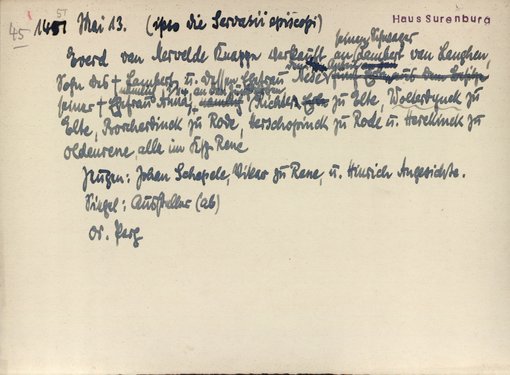 51
45 1451 Mai 13. (ipso die Servatii episcopi) Haus Surenburg
seinem Schwager
Everd van Mervelde Knappe verkauft an Lambert van Langhen,
Sohn des + Lamberts u. dessen Ehefrau Nese
seiner + Ehefrau Anna, nämlich Richter zu Elte, Wolterdynck zu
Elte, Borcherdinck zu Rode, Herschopinck zu Rode u. Herekinck zu
oldenrene, alle im Ksp Rene
Zeugen: Johan Schepele, Vikar zu Rene, u. Hinrich Angesichte.
Siegel: Aussteller (ab)
Or. Perg